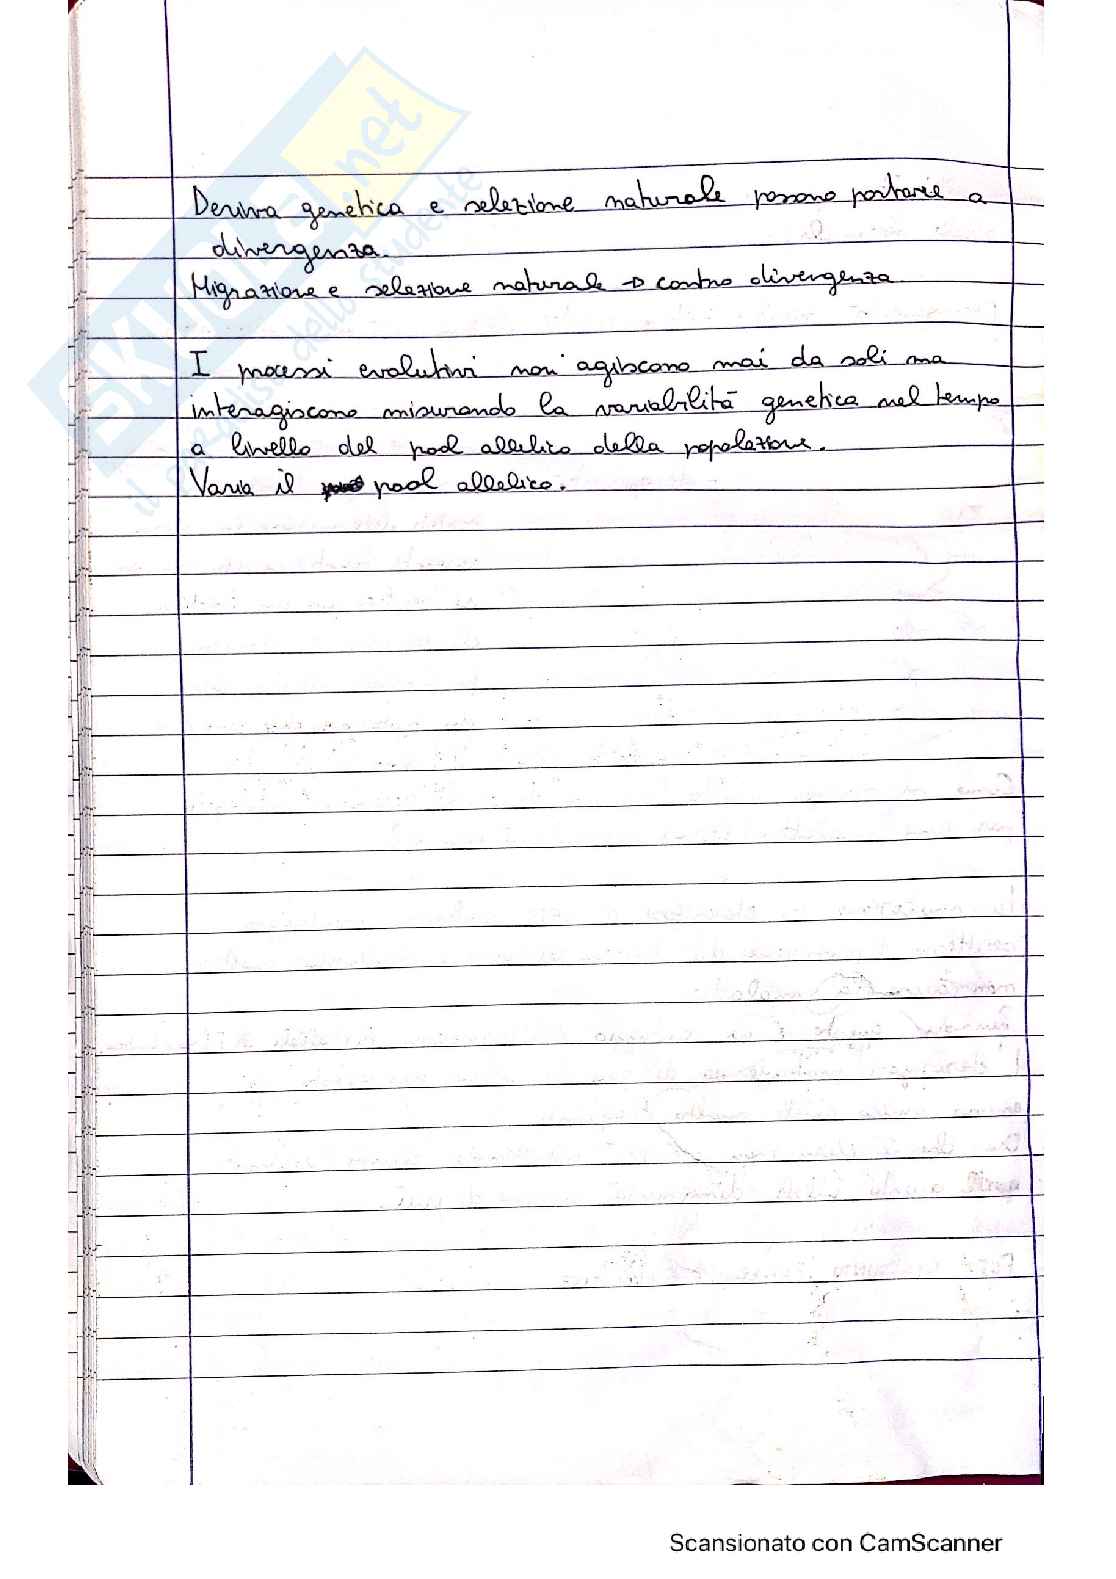 Deriva genetica e selezione naturale possono portare a
divergenza.
Migrazione e selezione naturale → contro divergenza
I processi evolutivi non agiscono mai da soli ma
interagiscono misurando la variabilità genetica nel tempo
a livello del pool allelico della popolazione.
Varia il pool allelico.
SKUOLA.net
il paradiso dello studente
Scansionato con CamScanner